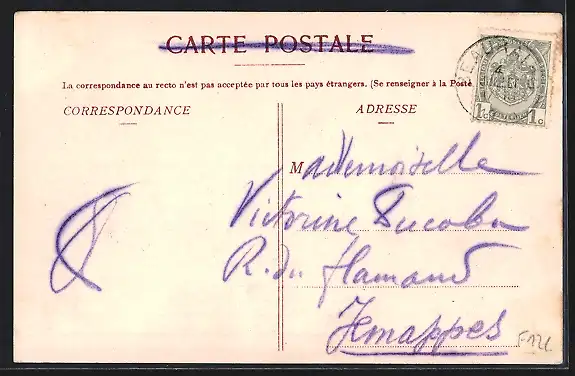 CARTE POSTALE
La correspondance au recto n'est pas acceptée par tous les pays étrangers. (Se renseigner à la Poste
CORRESPONDANCE
ADRESSE
1c 1c
Mademoiselle
Victorine Ducobu
R. du flamand
Jemappes